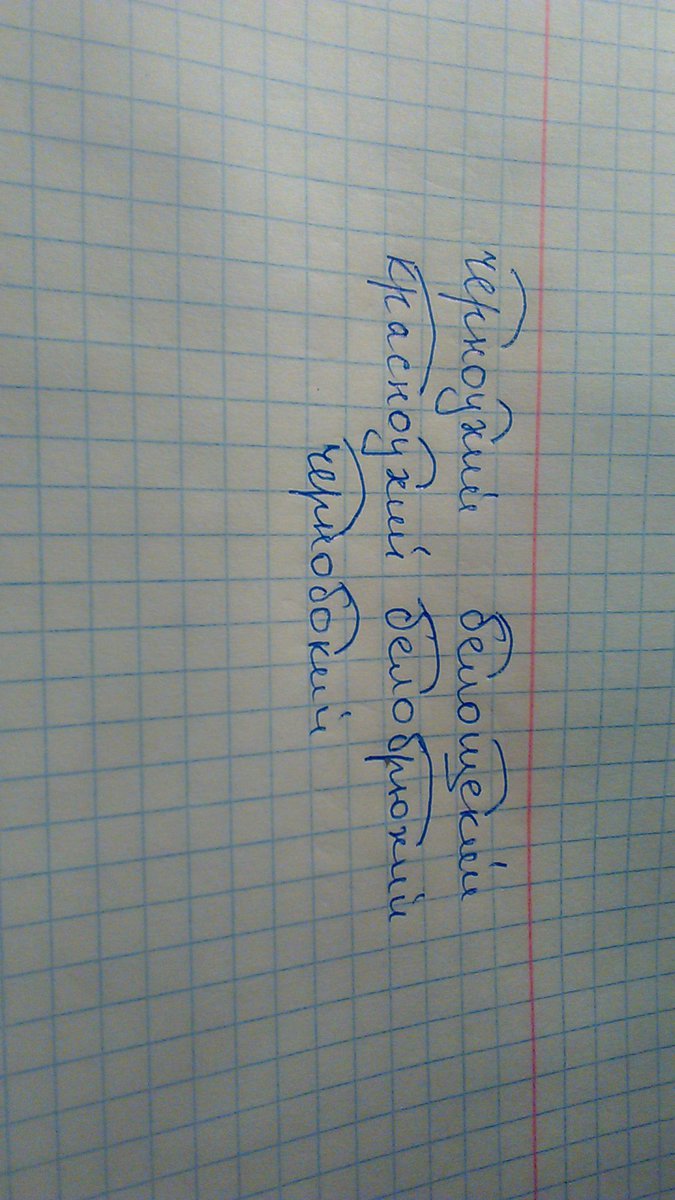 черноухий белощекий
красноухий белобрюхий
чернобокий